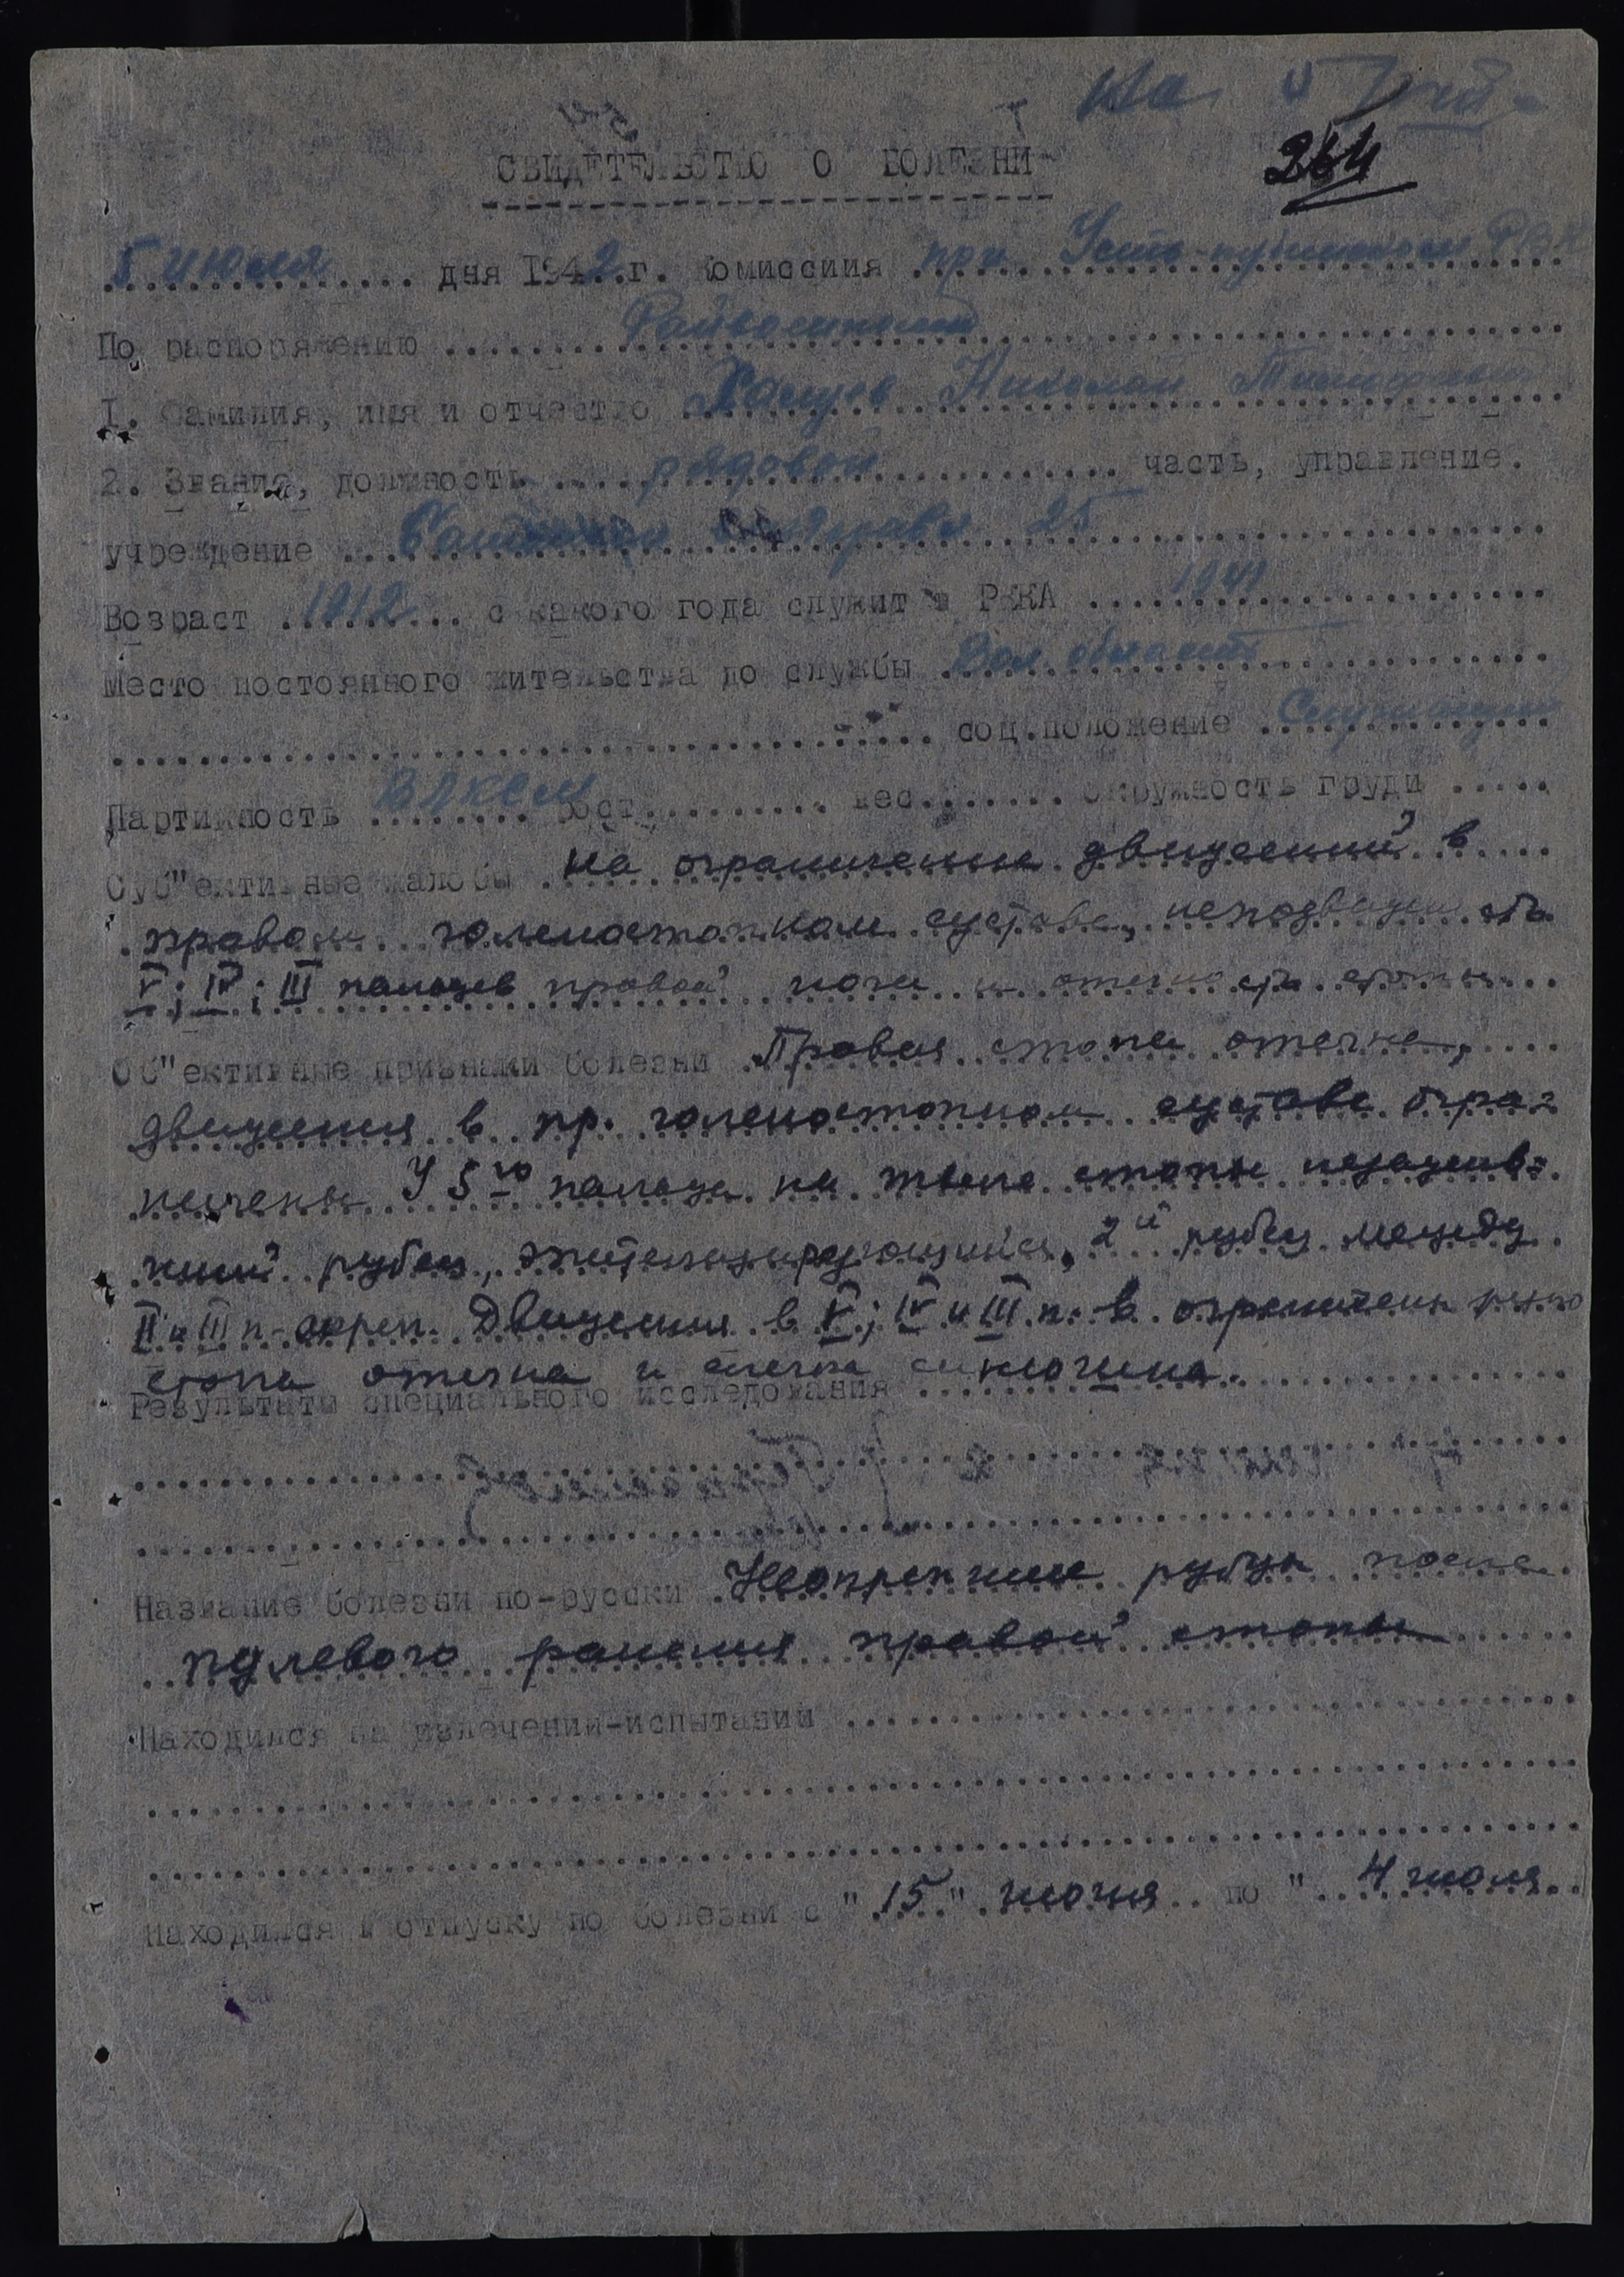 На учёт
264
СВИДЕТЕЛЬСТВО О БОЛЕЗНИ
5 июля дня 1942 г. Комиссия при Усть-Кубинском РВК
По распоряжению Райвоенкомат
I. Фамилия, имя и отчество Николай
2. Звание, должность рядовой часть, управление.
учреждение 25
Возраст 1912 с какого года служит в РККА 1941
Место постоянного жительства до службы Вол. область
соц.положение Служащий
Партийность ВЛКСМ рост вес окружность груди
Суб"ективные жалобы на ограничение движений в
правом голеностопном суставе, неподвижность
V; IV; III пальцев правой ноги и отечность стопы
Об"ективные признаки болезни Правая стопа отечна,
движения в пр. голеностопном суставе огра-
ничены У 5го пальца на тыле стопы незажив-
ший рубец, 2й рубец между
II и III п. окреп. Движения в V; IV и III п. в. ограничены резко
стопа отечна и слегка синюшна.
Результаты специального исследования
Название болезни по-русски Неокрепшие рубцы после
пулевого ранения правой стопы
Находился на излечении-испытании
Находился в отпуску по болезни с "15" июня по "4 июля